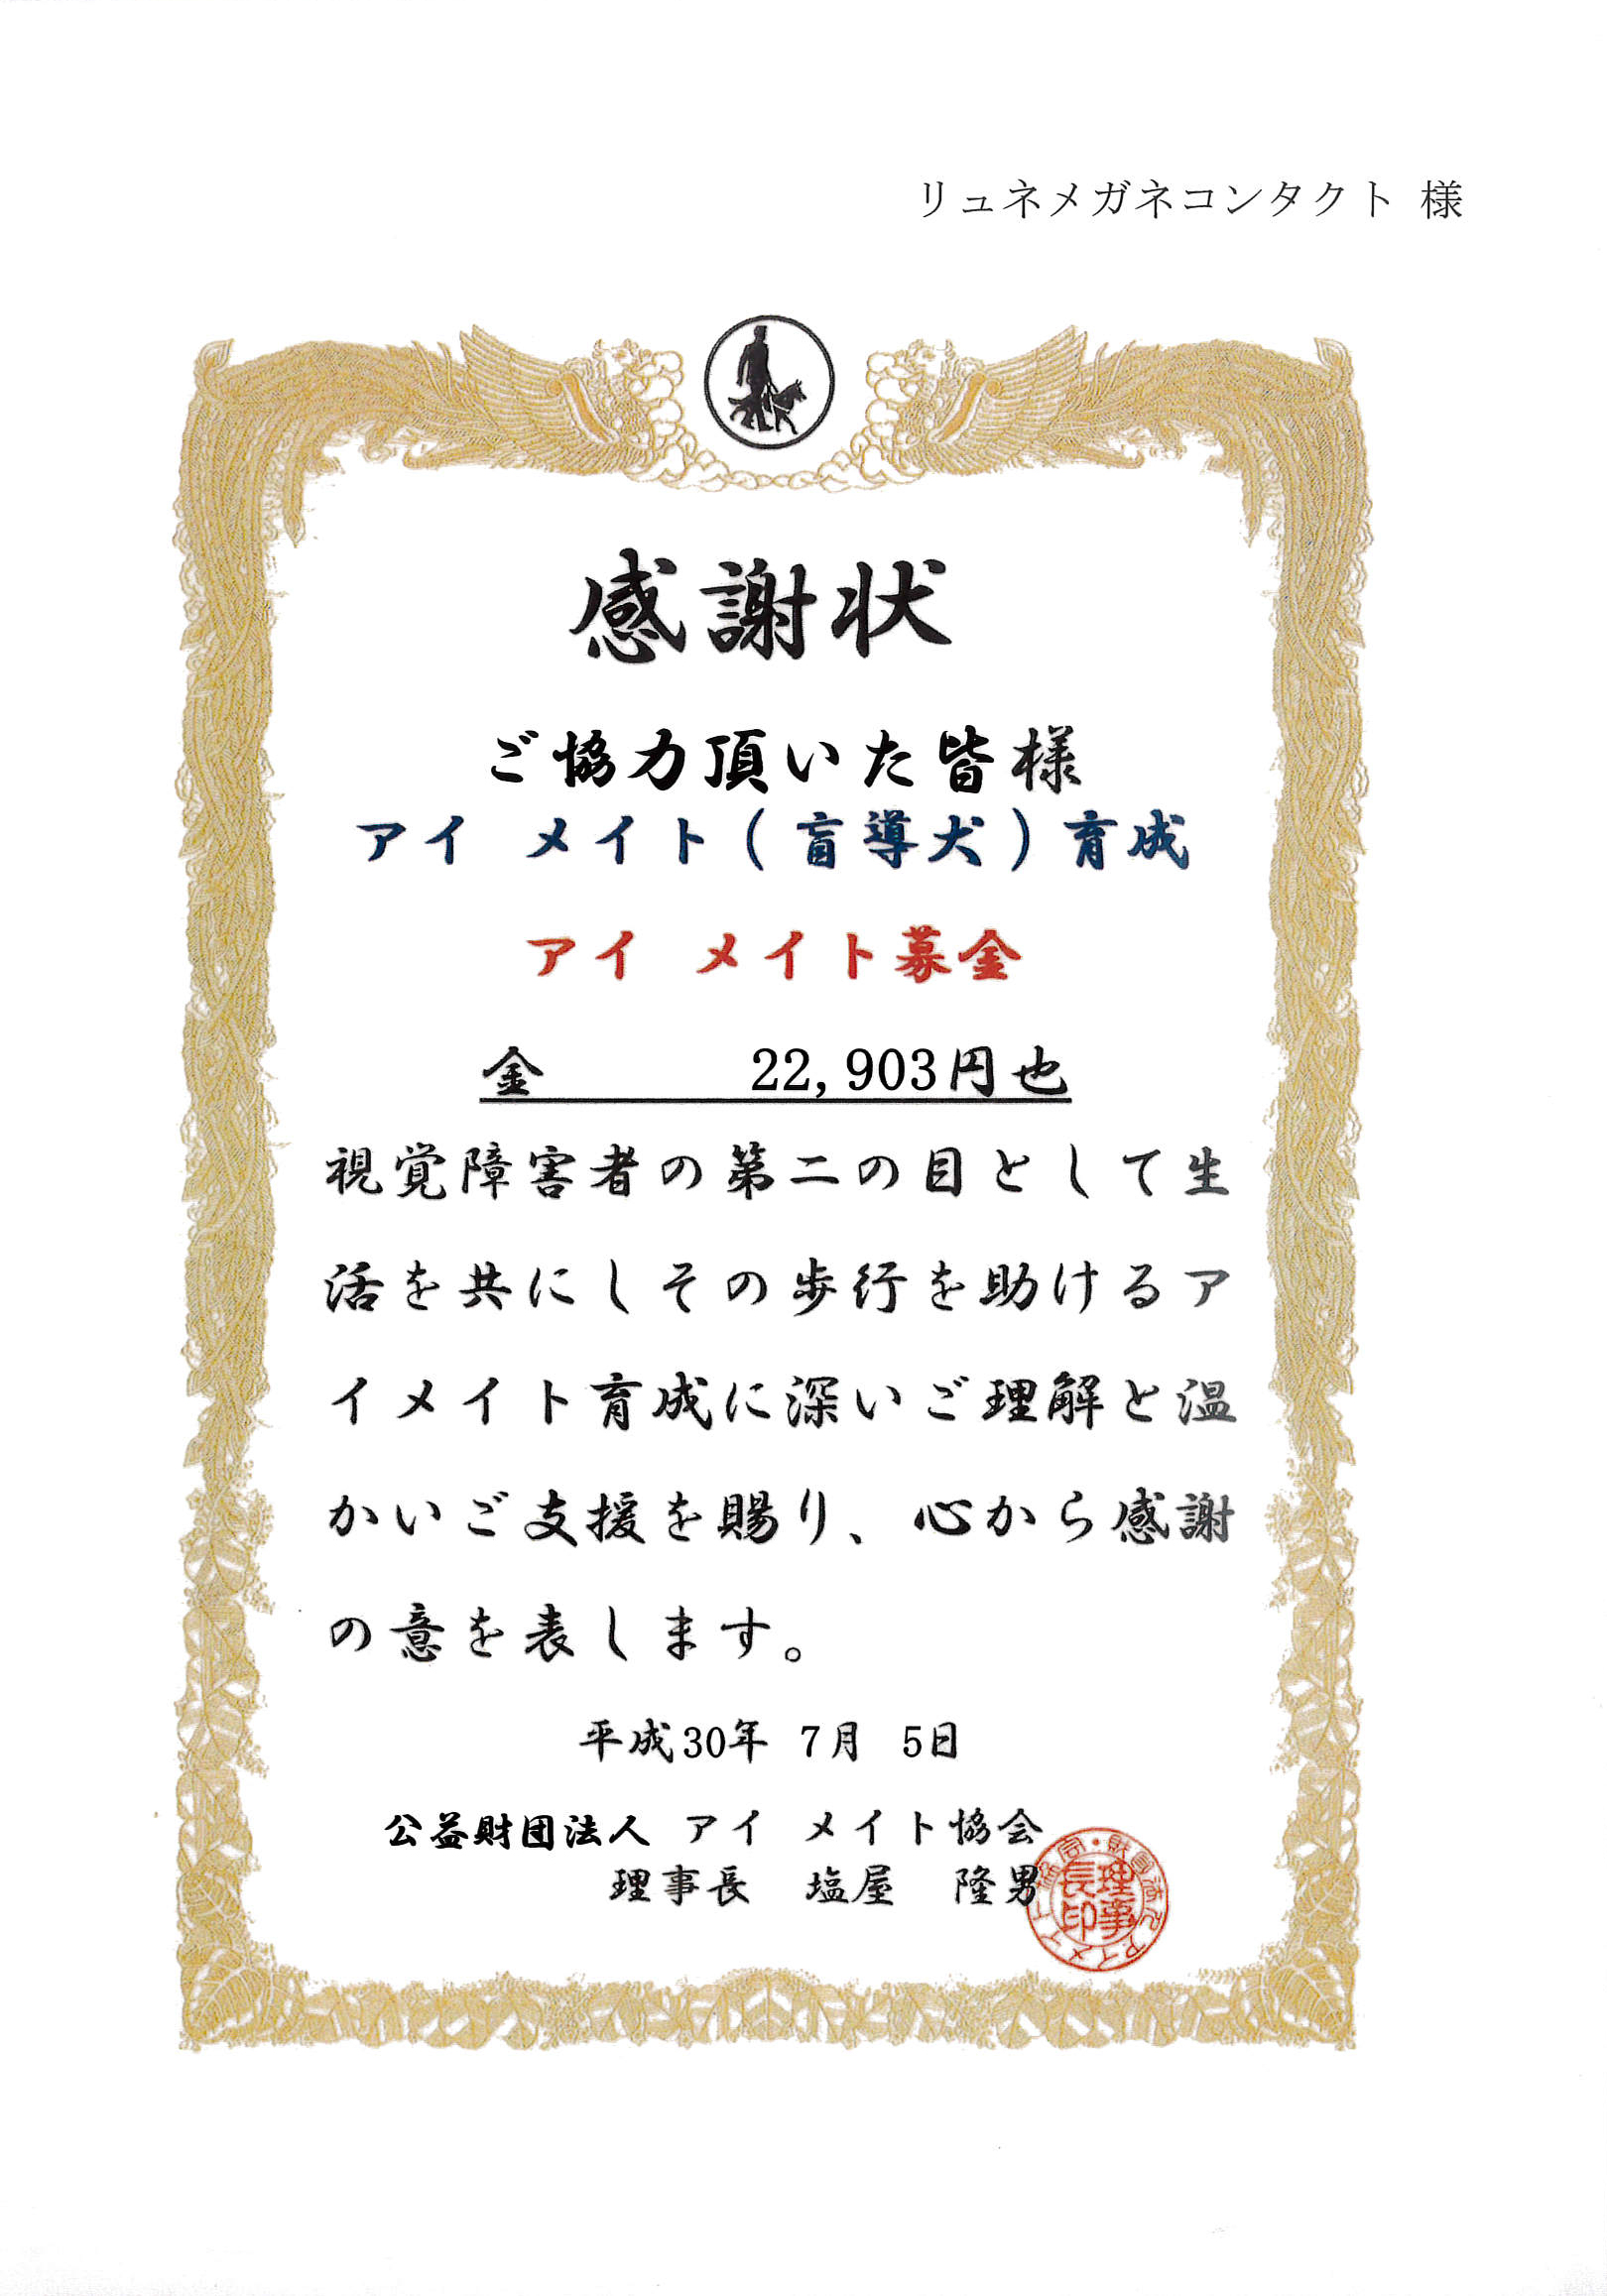 リュネメガネコンタクト 様
感謝状
ご協力頂いた皆様
アイ メイト(盲導犬)育成
アイ メイト募金
金 22,903円也
視覚障害者の第二の目として生
活を共にしその歩行を助けるア
イメイト育成に深いご理解と温
かいご支援を賜り、心から感謝
の意を表します。
平成30年 7月 5日
公益財団法人 アイ メイト協会
理事長 塩屋 隆男
理事長印